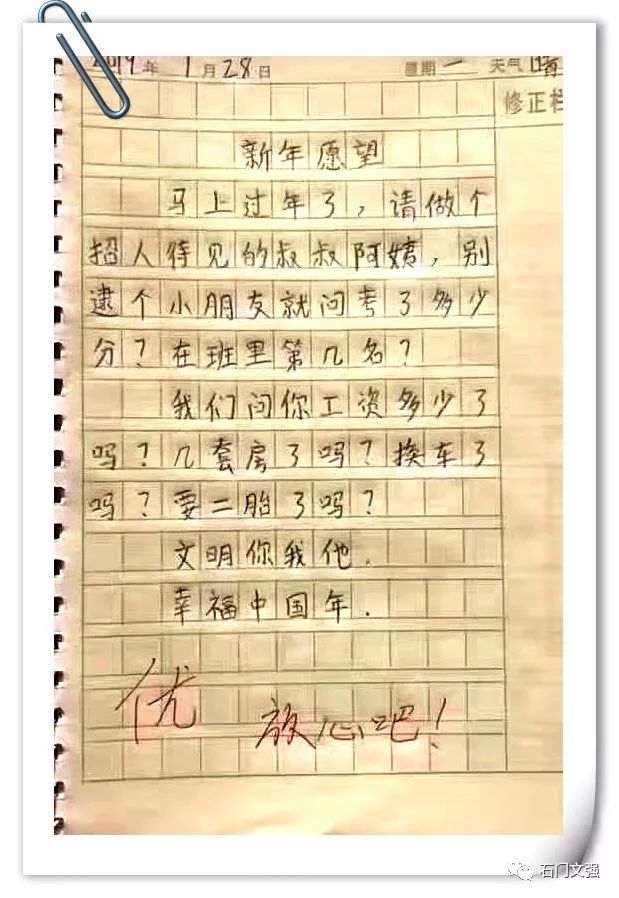 2019年1月28日 星期一 天气晴
修正栏
新年愿望
马上过年了，请做个
招人待见的叔叔阿姨，别
逮个小朋友就问考了多少
分？在班里第几名？
我们问你工资多少了
吗？几套房了吗？换车了
吗？要二胎了吗？
文明你我他.
幸福中国年.
优 放心吧！
石门文强